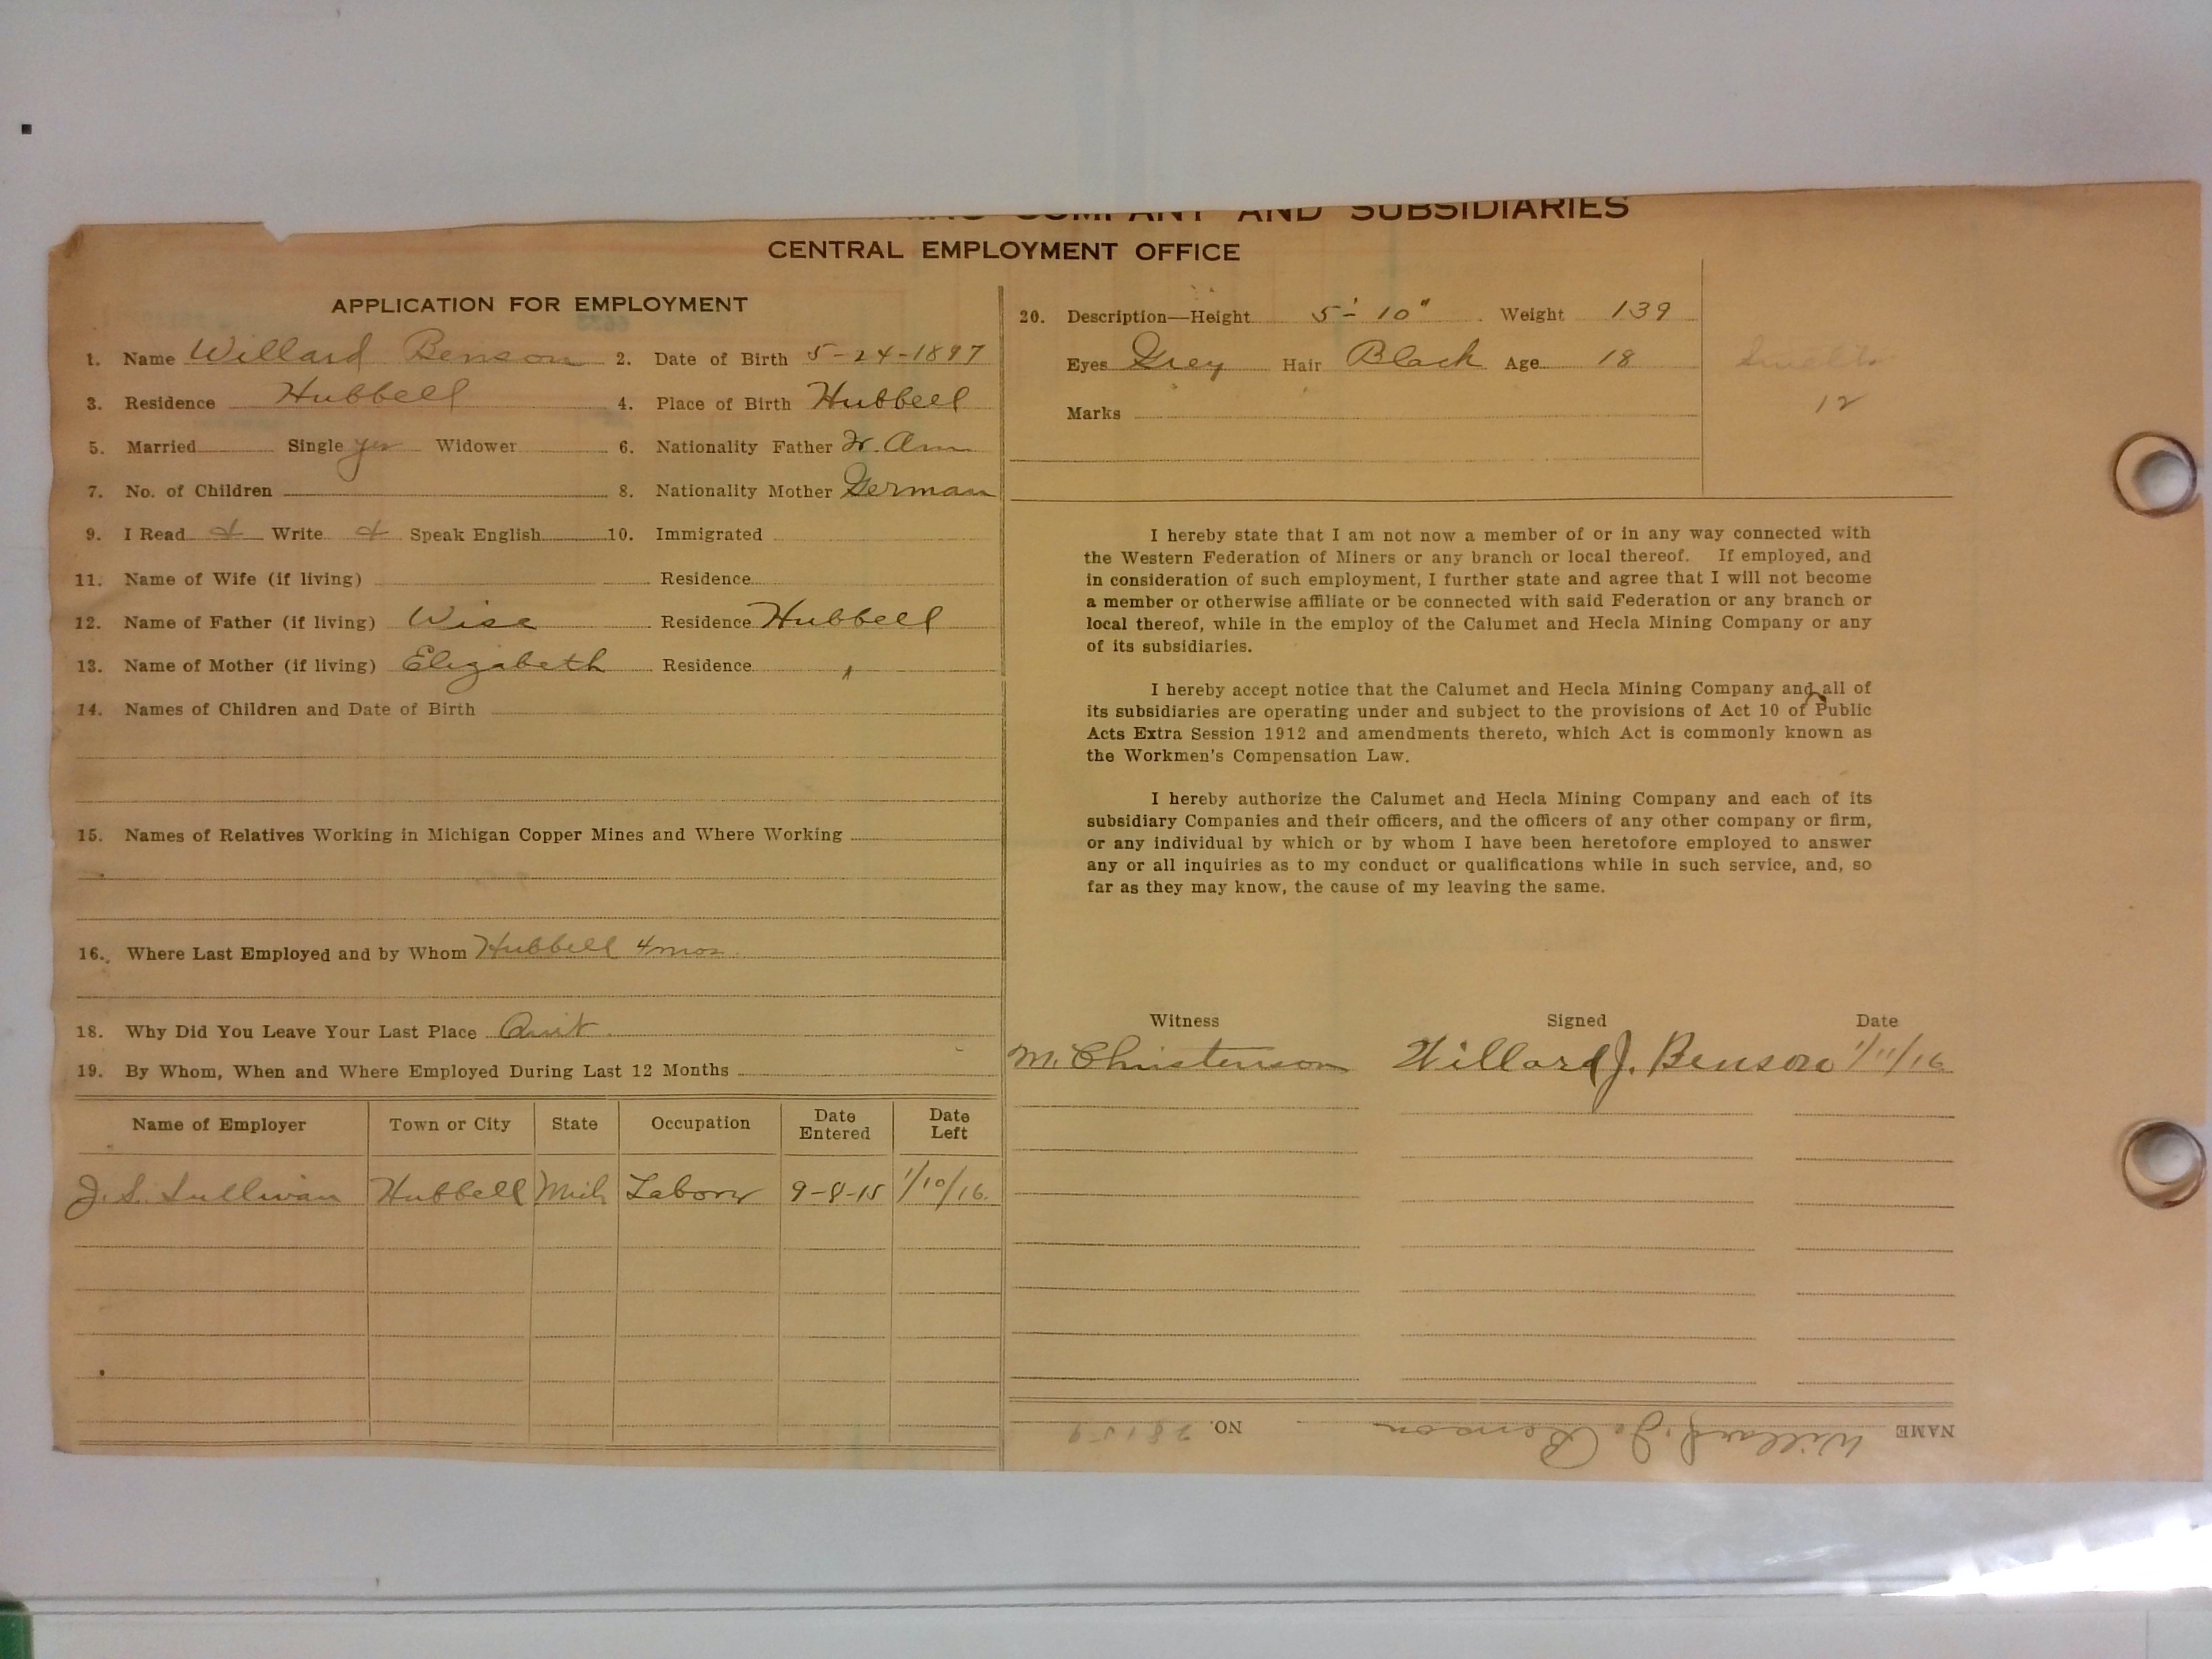 COMPANY AND SUBSIDIARIES
CENTRAL EMPLOYMENT OFFICE
APPLICATION FOR EMPLOYMENT
1. Name Willard Benson 2. Date of Birth 5-24-1897
3. Residence Hubbell 4. Place of Birth Hubbell
5. Married Single yes Widower 6. Nationality Father Fr. Am
7. No. of Children 8. Nationality Mother German
9. I Read & Write & Speak English 10. Immigrated
11. Name of Wife (if living) Residence
12. Name of Father (if living) Wise Residence Hubbell
13. Name of Mother (if living) Elizabeth Residence "
14. Names of Children and Date of Birth
15. Names of Relatives Working in Michigan Copper Mines and Where Working
16. Where Last Employed and by Whom Hubbell 4 mos
18. Why Did You Leave Your Last Place Quit
19. By Whom, When and Where Employed During Last 12 Months
Name of Employer Town or City State Occupation Date Entered Date Left
J. S. Sullivan Hubbell Mich Labor 9-8-15 1/10/16.
20. Description—Height 5'-10" Weight 139
Eyes Grey Hair Black Age 18
Marks
Smelter
12
I hereby state that I am not now a member of or in any way connected with
the Western Federation of Miners or any branch or local thereof. If employed, and
in consideration of such employment, I further state and agree that I will not become
a member or otherwise affiliate or be connected with said Federation or any branch or
local thereof, while in the employ of the Calumet and Hecla Mining Company or any
of its subsidiaries.
I hereby accept notice that the Calumet and Hecla Mining Company and all of
its subsidiaries are operating under and subject to the provisions of Act 10 of Public
Acts Extra Session 1912 and amendments thereto, which Act is commonly known as
the Workmen's Compensation Law.
I hereby authorize the Calumet and Hecla Mining Company and each of its
subsidiary Companies and their officers, and the officers of any other company or firm,
or any individual by which or by whom I have been heretofore employed to answer
any or all inquiries as to my conduct or qualifications while in such service, and, so
far as they may know, the cause of my leaving the same.
Witness Signed Date
M. Christenson Willard J. Benson 1/11/16
NAME Willard J. Benson NO. 28159